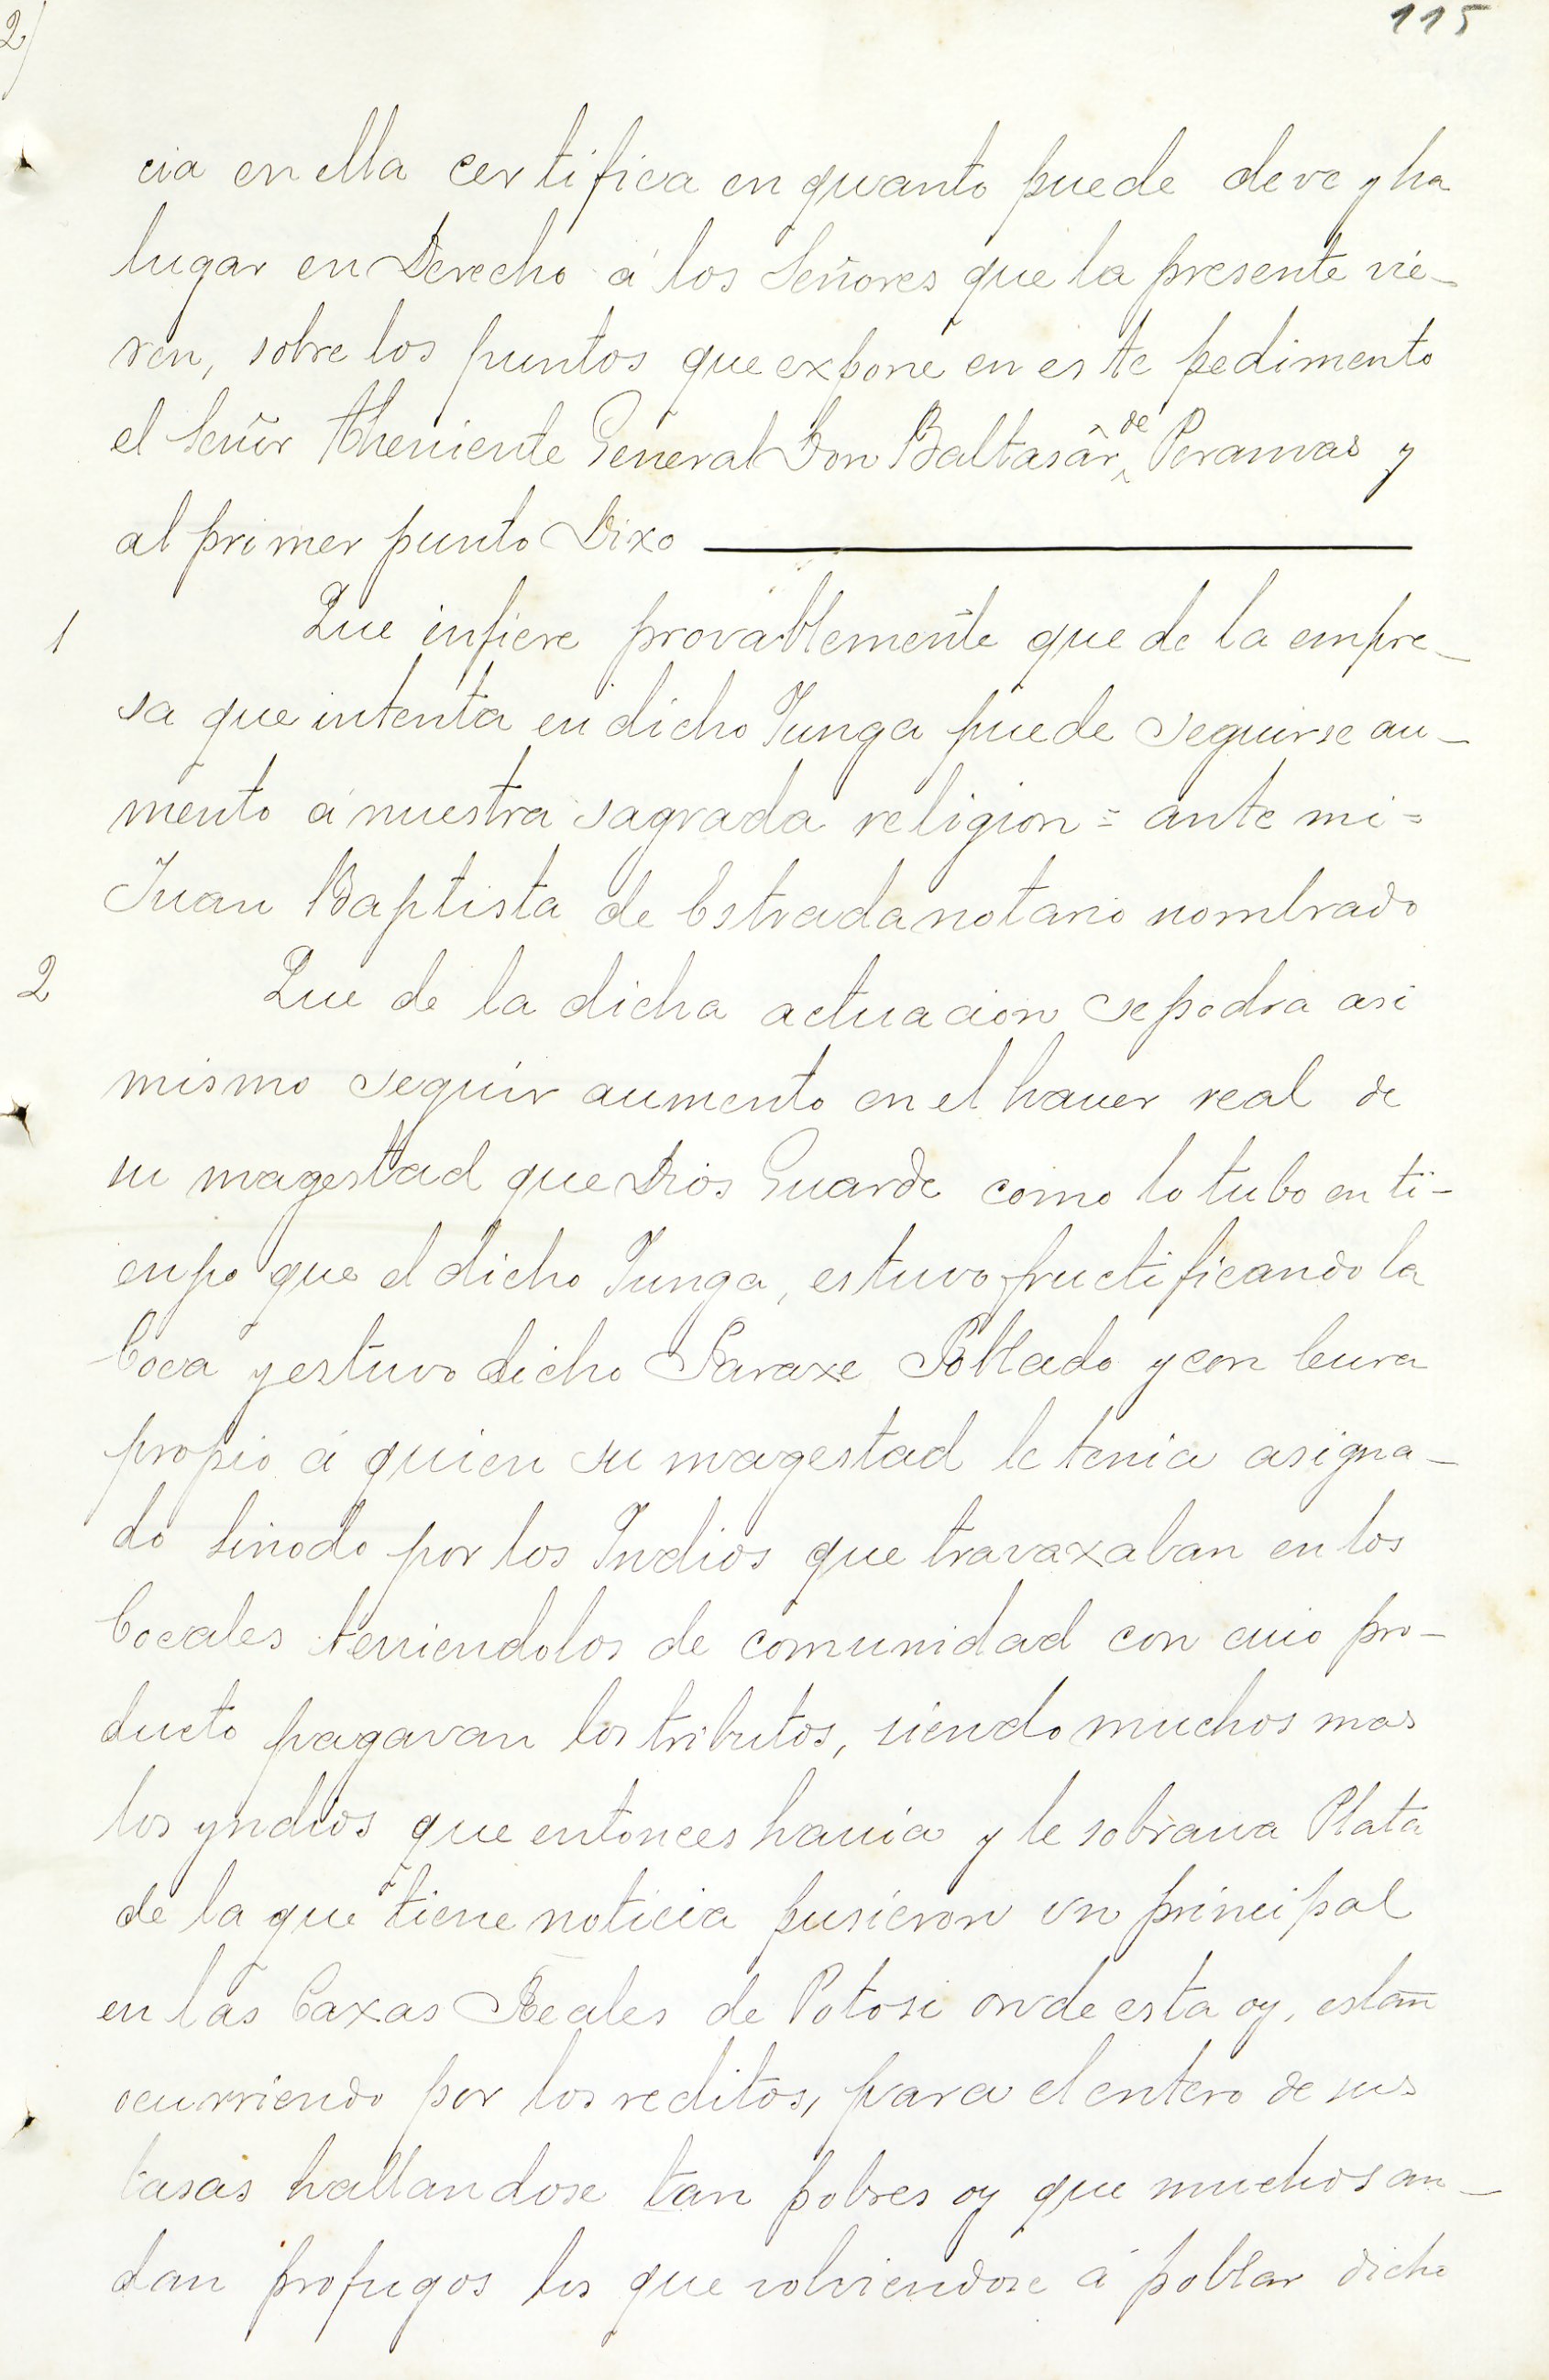 2/
115
cia en ella certifica en quanto puede deve y ha
lugar en Derecho á los Señores que la presente vie-
ren, sobre los puntos que expone en este pedimento
el Señor Theniente General Don Baltasâr de Peramas y
al primer punto Dixo
1 Que infiere provablemente que de la empre-
sa que intenta en dicho Yunga puede seguirse au-
mento á nuestra sagrada religion = ante mi =
Juan Baptista de Estrada notario nombrado
2 Que de la dicha actuacion se podra asi
mismo seguir aumento en el hauer real de
su magestad que Dios Guarde como lo tubo en ti-
enpo que el dicho Yunga, estuvo fructificando la
Coca y estuvo dicho Paraxe Poblado y con Cura
propio á quien su magestad le tenia asigna-
do Sinodo por los Indios que travaxaban en los
Cocales teniendolos de comunidad con cuio pro-
ducto pagavan los tributos, siendo muchos mas
los yndios que entonces hauia y le sobraua Plata
de la que tiene noticia pusieron un principal
en las Caxas Reales de Potosi onde esta oy, estan
ocurriendo por los reditos, para el entero de sus
tasas hallandose tan pobres oy que muchos an-
dan profugos los que volviendose á poblar dicho